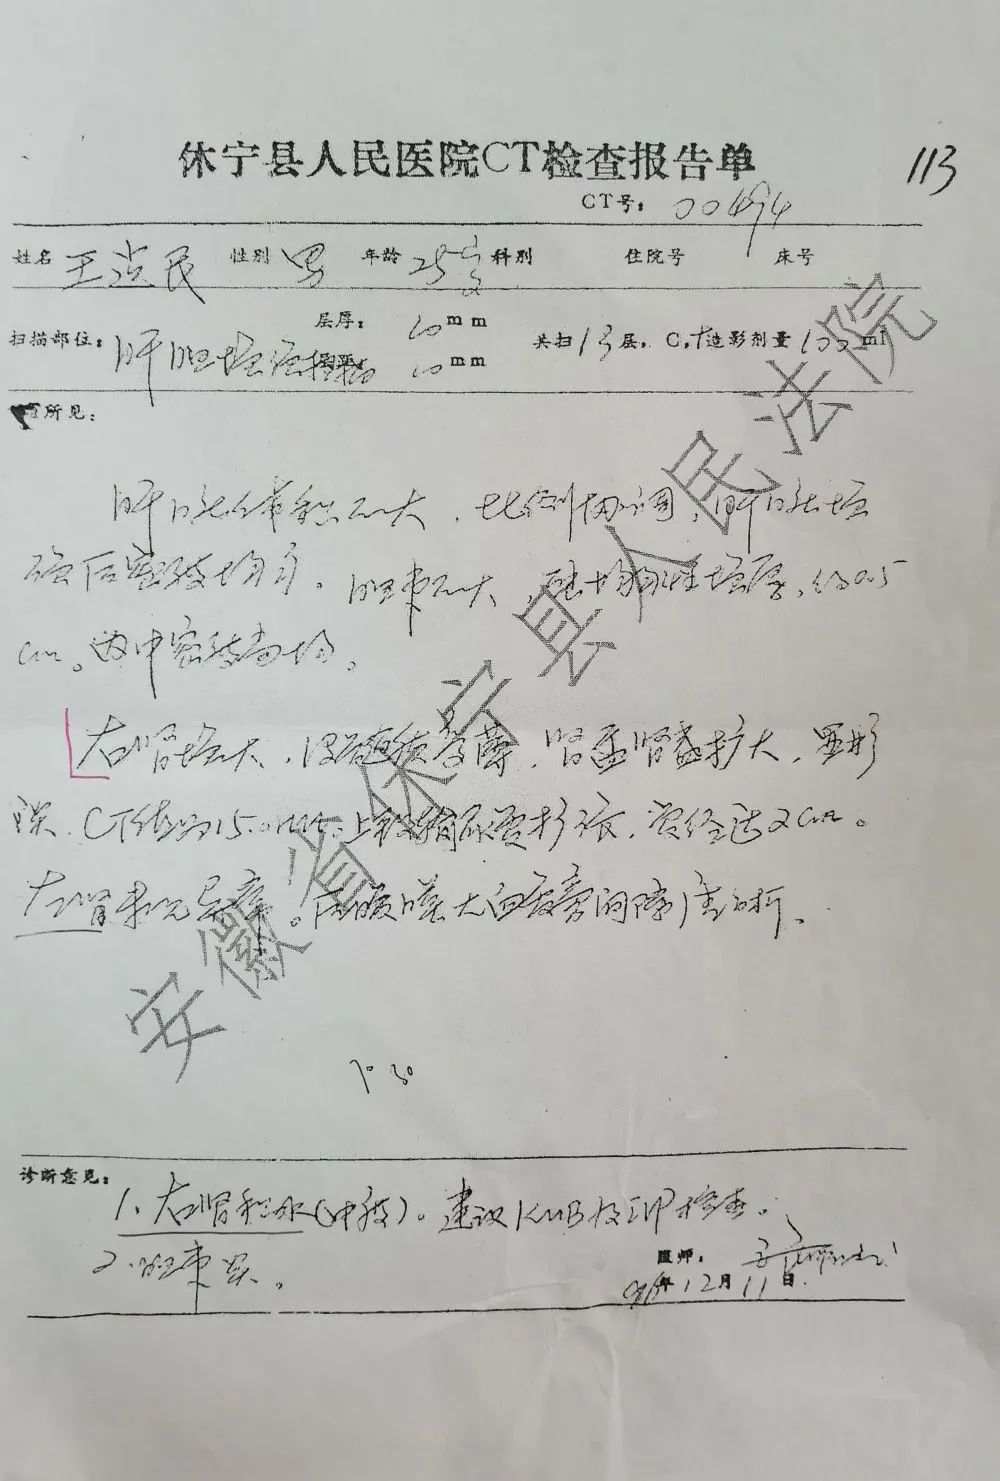 休宁县人民医院CT检查报告单
113
CT号: 00494
姓名 王 民 性别 男 年龄 25岁 科别 住院号 床号
层厚: 10mm
扫描部位: 肝胆增强扫描 10mm 共扫 13层, C.T造影剂量 100ml
所见:
肝脏体积不大, 比例协调, 肝脏增
强后密度均匀. 胆囊不大, 壁均匀性增厚, 约0.5
cm。内中密度尚均。
右肾增大, 皮质变薄, 肾盂肾盏扩大, 显形
CT值为15. 上段输尿管扩张, 管经达2cm。
左肾未见异常。后腹膜大血管旁间隙清晰.
诊断意见:
1. 右肾积水(中度)。建议KUB及IVP检查。
2. 胆囊炎。
医师:
年12月11日.
安徽省休宁县人民法院